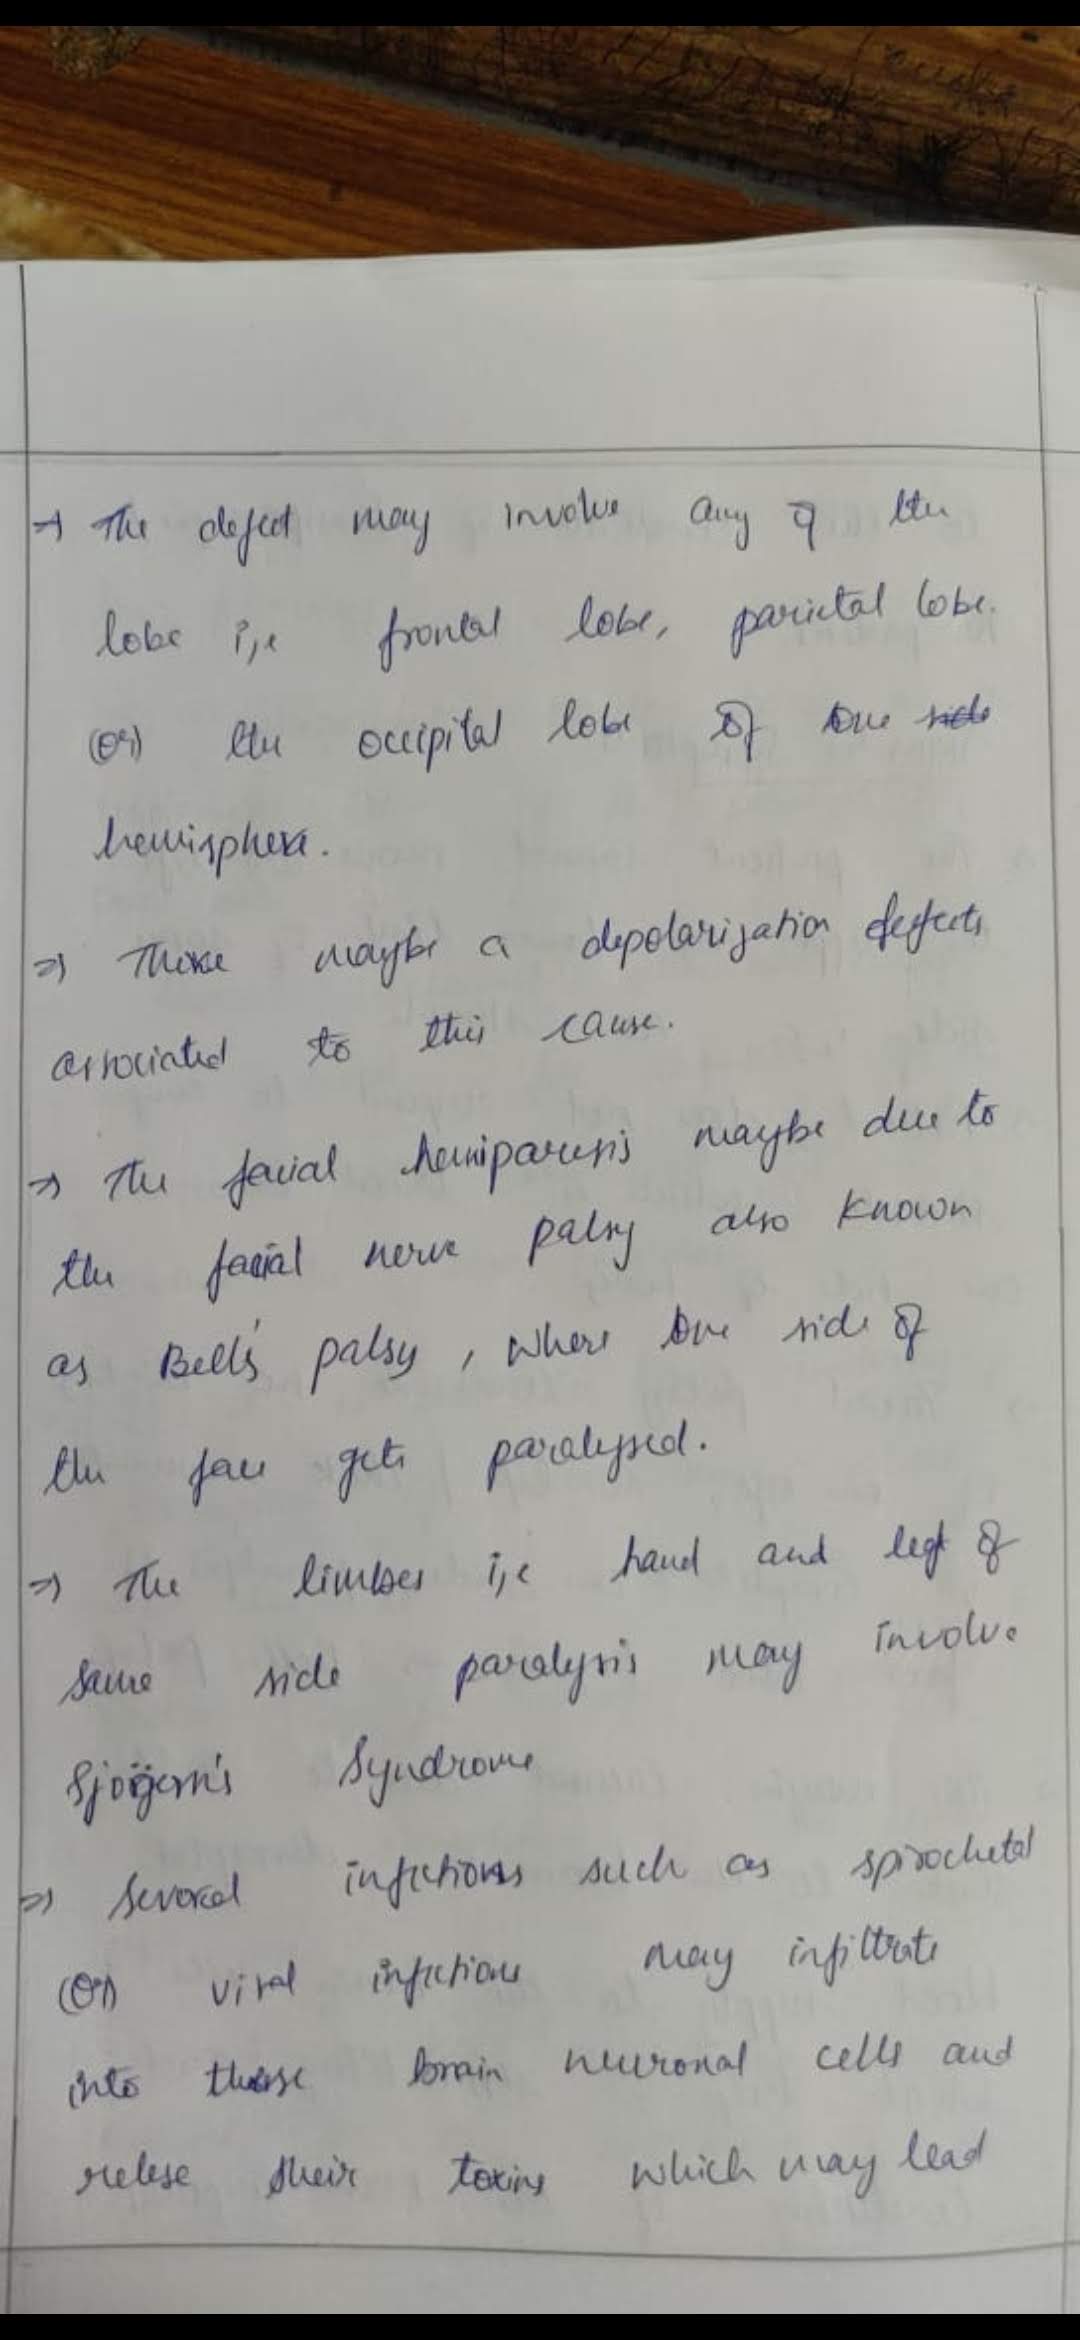 → The defect may involve any of the
lobe i,e frontal lobe, parietal lobe.
(or) the occipital lobe of one side
hemisphere.
⇒ There maybe a depolarization defects
associated to this cause.
⇒ The facial hemiparesis maybe due to
the facial nerve palsy also known
as Bell's palsy, where one side of
the face gets paralysed.
⇒ The limbes i,e hand and leg of
same side paralysis may involve
Sjögern's Syndrome
⇒ Several infections such as spirochetal
(or) viral infections may infiltrate
into these brain neuronal cells and
relese their toxins which may lead